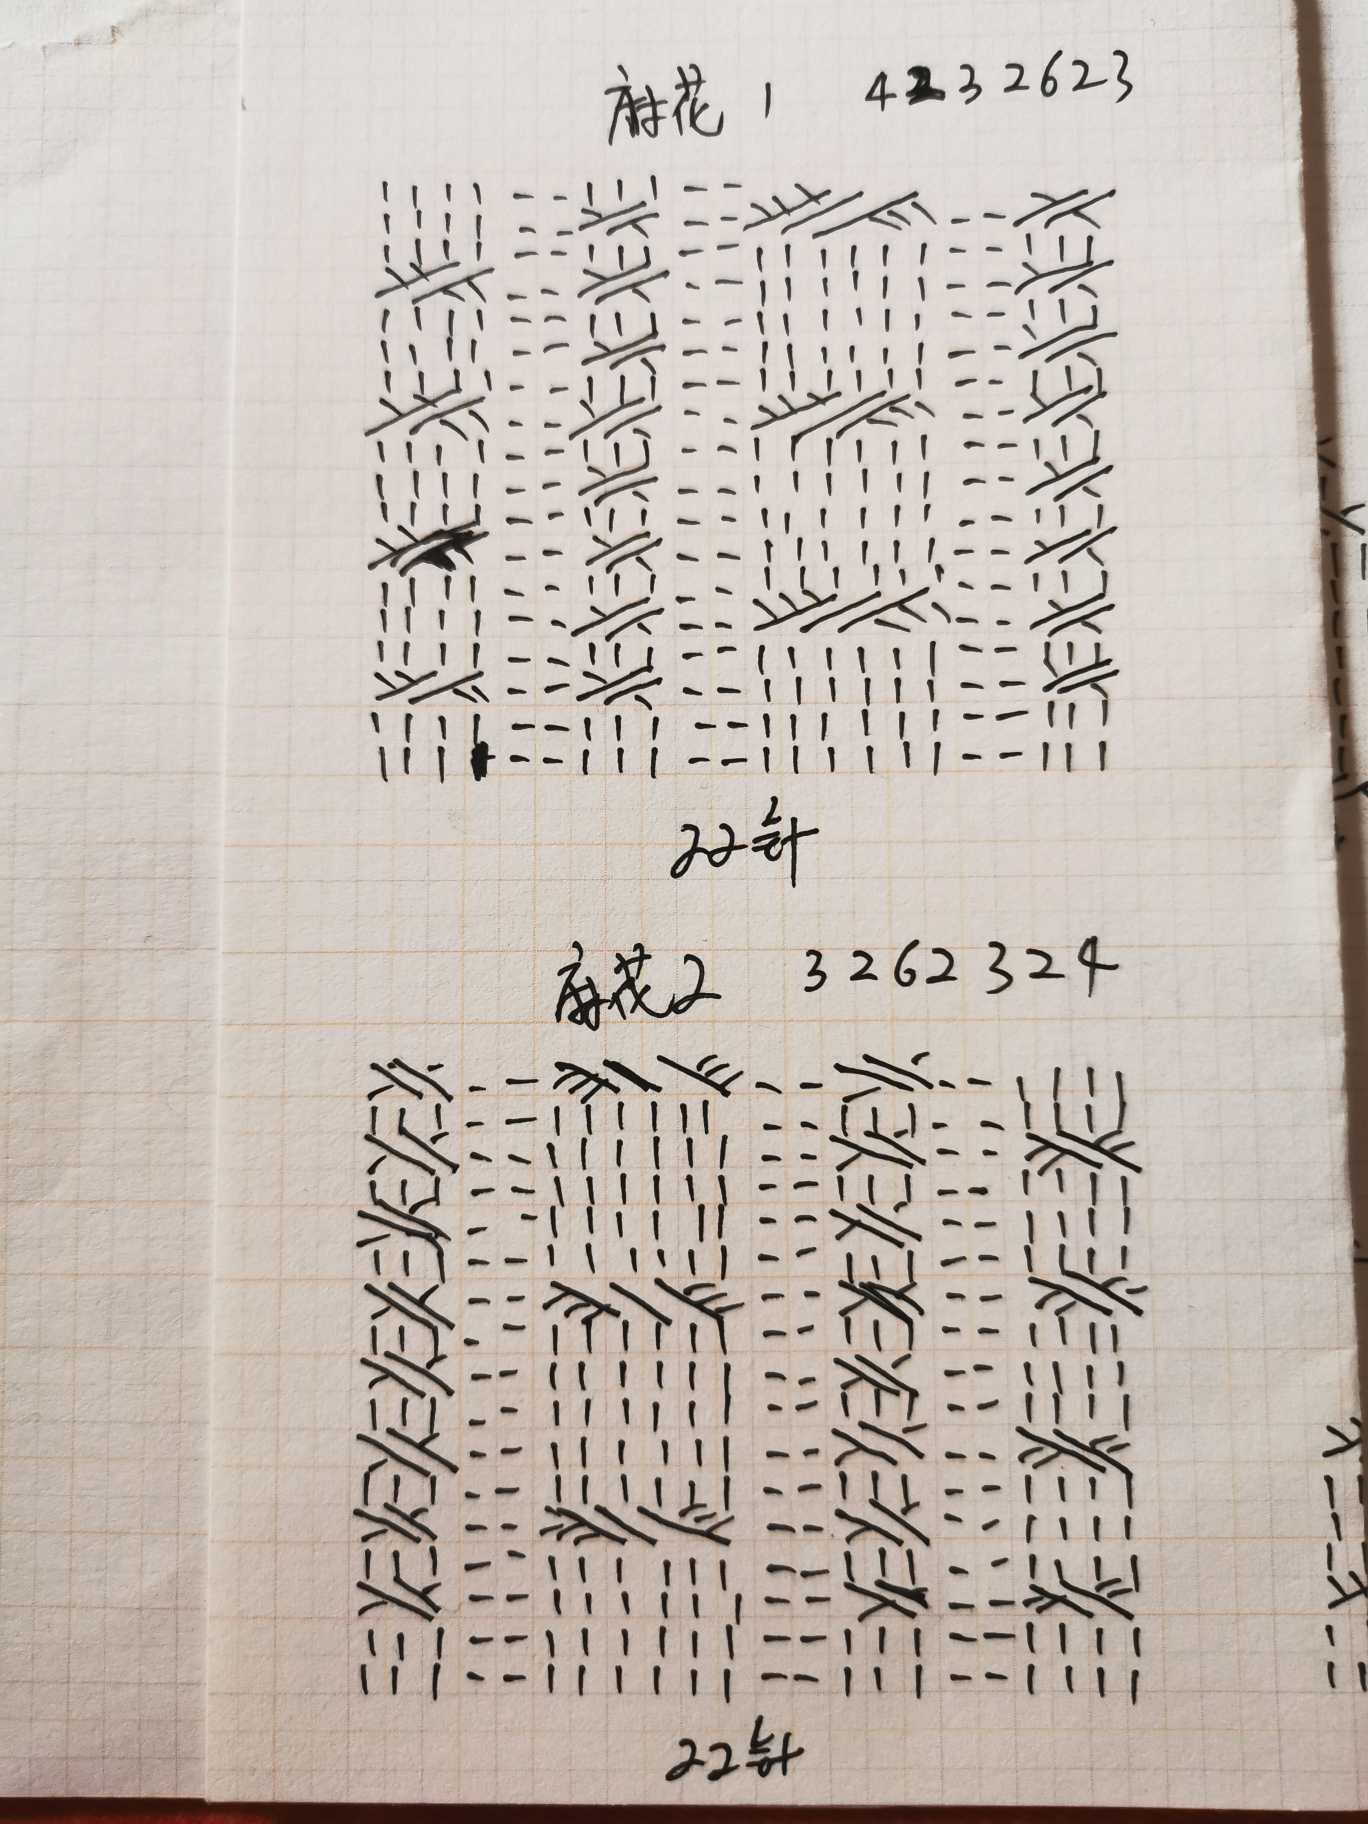 麻花1 4232623
22针
麻花2 3262324
22针